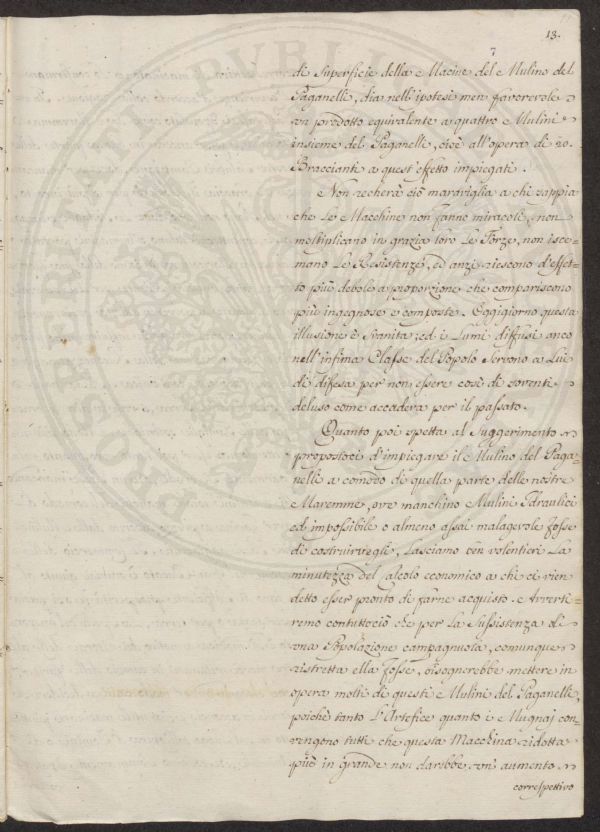 13.
7
di Superficie della Macine del Mulino del
Paganelli, dia nell'ipotesi men favorevole
un prodotto equivalente a quattro Mulini
insieme del Paganelli, cioè all'opera di 20.
Braccianti a quest'effetto impiegati.
Non recherà ciò maraviglia a chi sappia
che le Macchine non fanno miracoli, non
moltiplicano in grazia loro le Forze, non isce=
mano le Resistenze, ed anzi riescono d'effet=
to più debole a proporzione che compariscono
più ingegnose e composte. Oggigiorno questa
illusione è svanita; ed i Lumi diffusi anco
nell'infima Classe del Popolo servono a Lui
di difesa per non essere così di soventi
deluso come accadeva per il passato.
Quanto poi spetta al Suggerimento
propostoci d'impiegare il Mulino del Paga=
nelli a comodo di quella parte delle nostre
Maremme, ove manchino Mulini Idraulici
ed impossibile o almeno assai malagevole fosse
di costruirvegli, Lasciamo ben volentieri La
minutezza del calcolo economico a chi ci vien
detto esser pronto di farne acquisto. Avverti=
remo contuttociò che per La Sussistenza di
una Popolazione campagnuola, comunque
ristretta ella fosse, bisognerebbe mettere in
opera molti di questi Mulini del Paganelli,
poichè tanto L'Artefice quanto i Mugnaj con=
vengono tutti che questa Macchina ridotta
più in grande non darebbe un aumento
correspettivo
PROSPERITATI PUBLICAE